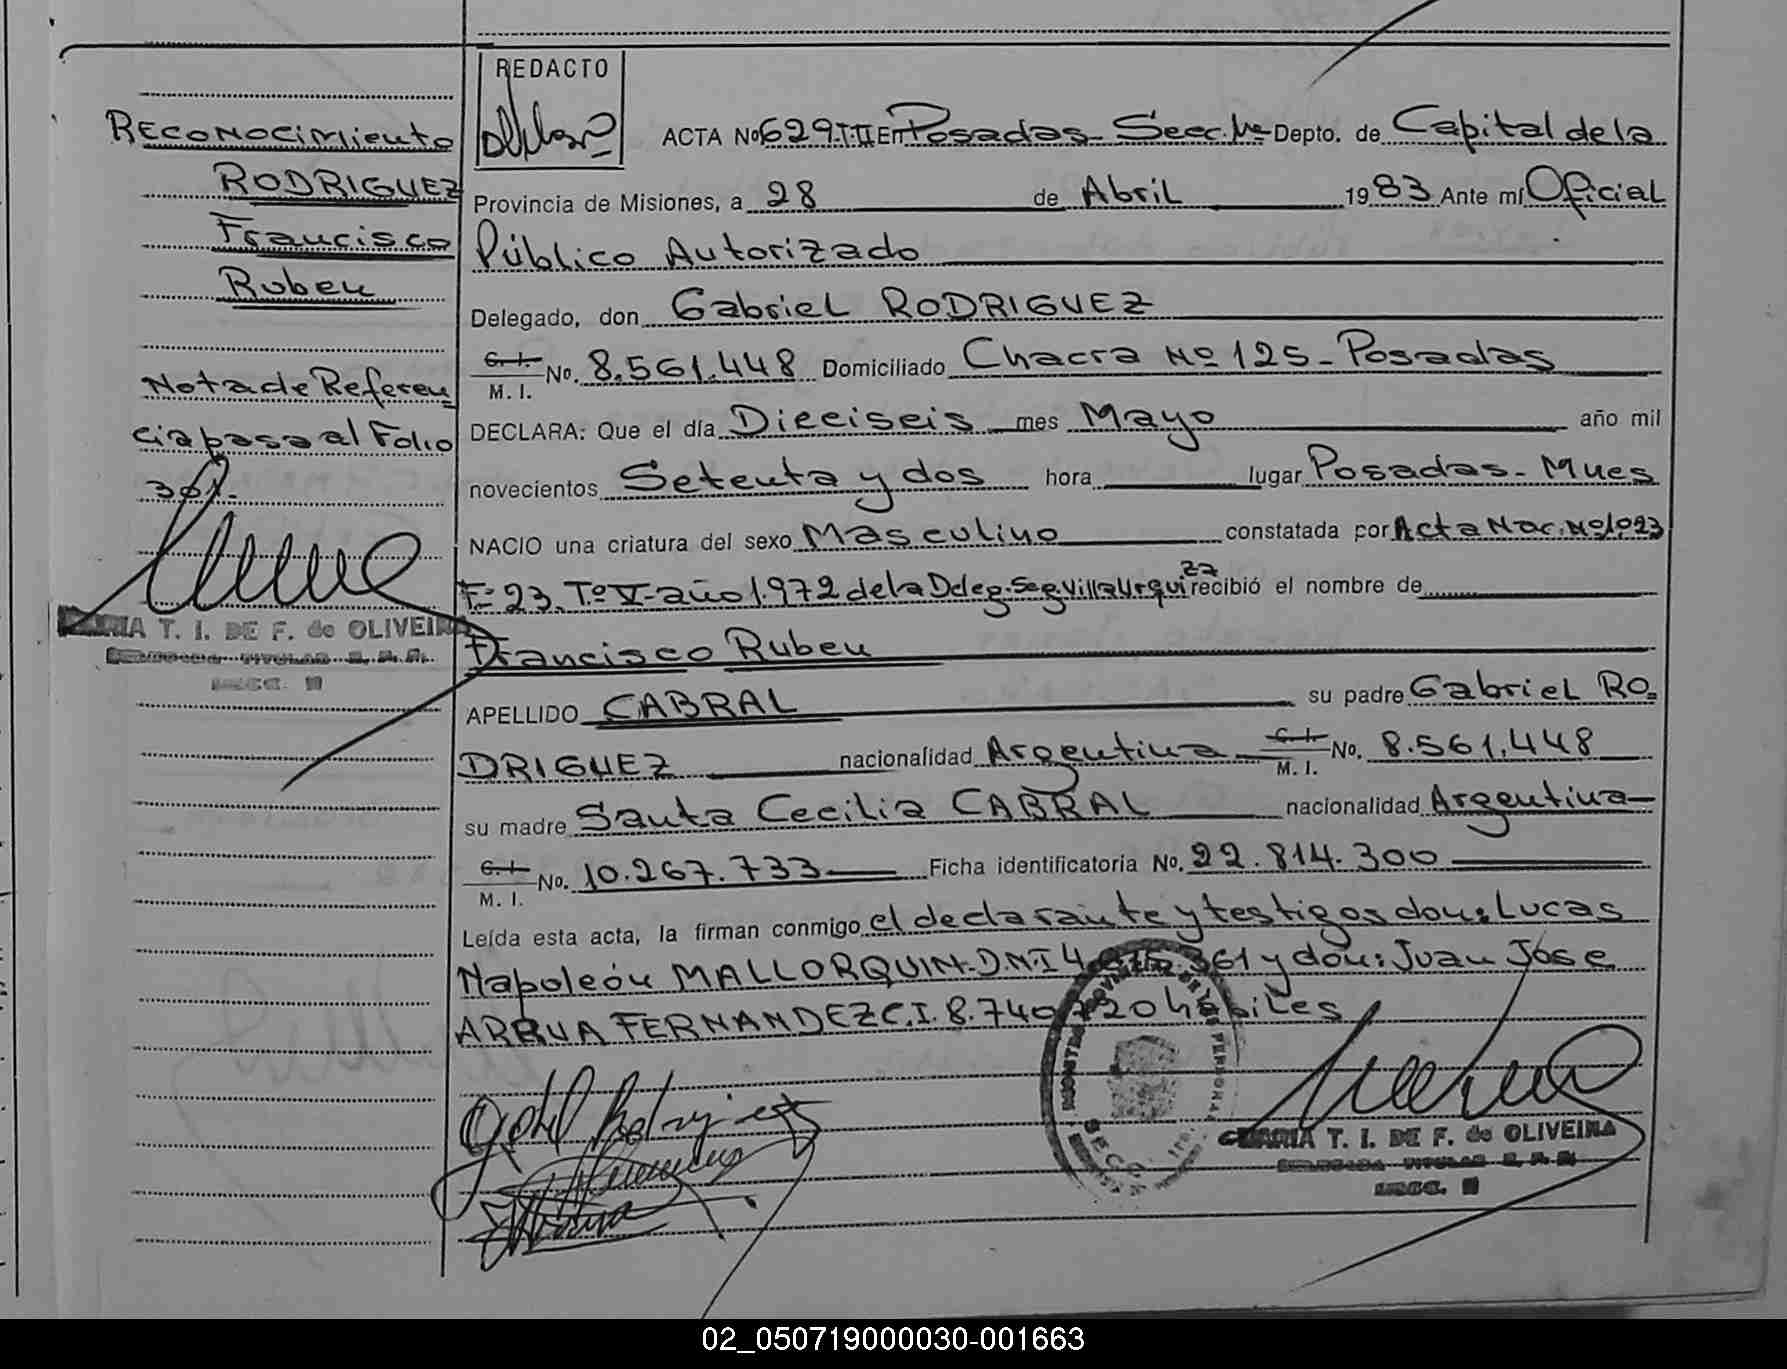 Reconocimiento
RODRIGUEZ
Francisco
Ruben
Nota de Referen
cia pasa al Folio
301.
MARIA T. I. DE F. de OLIVEIRA
SECC. II
REDACTO
ACTA No 629 T. II En Posadas - Secc. 1ra Depto. de Capital de la
Provincia de Misiones, a 28 de Abril 1983 Ante mí Oficial
Público Autorizado
Delegado, don Gabriel RODRIGUEZ
C. I. M. I. No. 8.561.448 Domiciliado Chacra No 125 - Posadas
DECLARA: Que el día Dieciseis mes Mayo año mil
novecientos Setenta y dos hora lugar Posadas - Mnes
NACIO una criatura del sexo Masculino constatada por Acta Nac. No 1.023
Fo 23. To V - año 1.972 de la Deleg. Seg. Villa Urquiza recibió el nombre de
Francisco Ruben
APELLIDO CABRAL su padre Gabriel RO=
DRIGUEZ nacionalidad Argentina C. I. M. I. No. 8.561.448
su madre Santa Cecilia CABRAL nacionalidad Argentina
C. I. M. I. No. 10.267.733 Ficha identificatoria No. 22.814.300
Leída esta acta, la firman conmigo el declarante y testigos don: Lucas
Napoleón MALLORQUIN - D.N.I 361 y don: Juan Jose
ARRUA FERNANDEZ C.I. 8.740.720 habiles
MARIA T. I. DE F. de OLIVEIRA
SECC. II
02_050719000030-001663